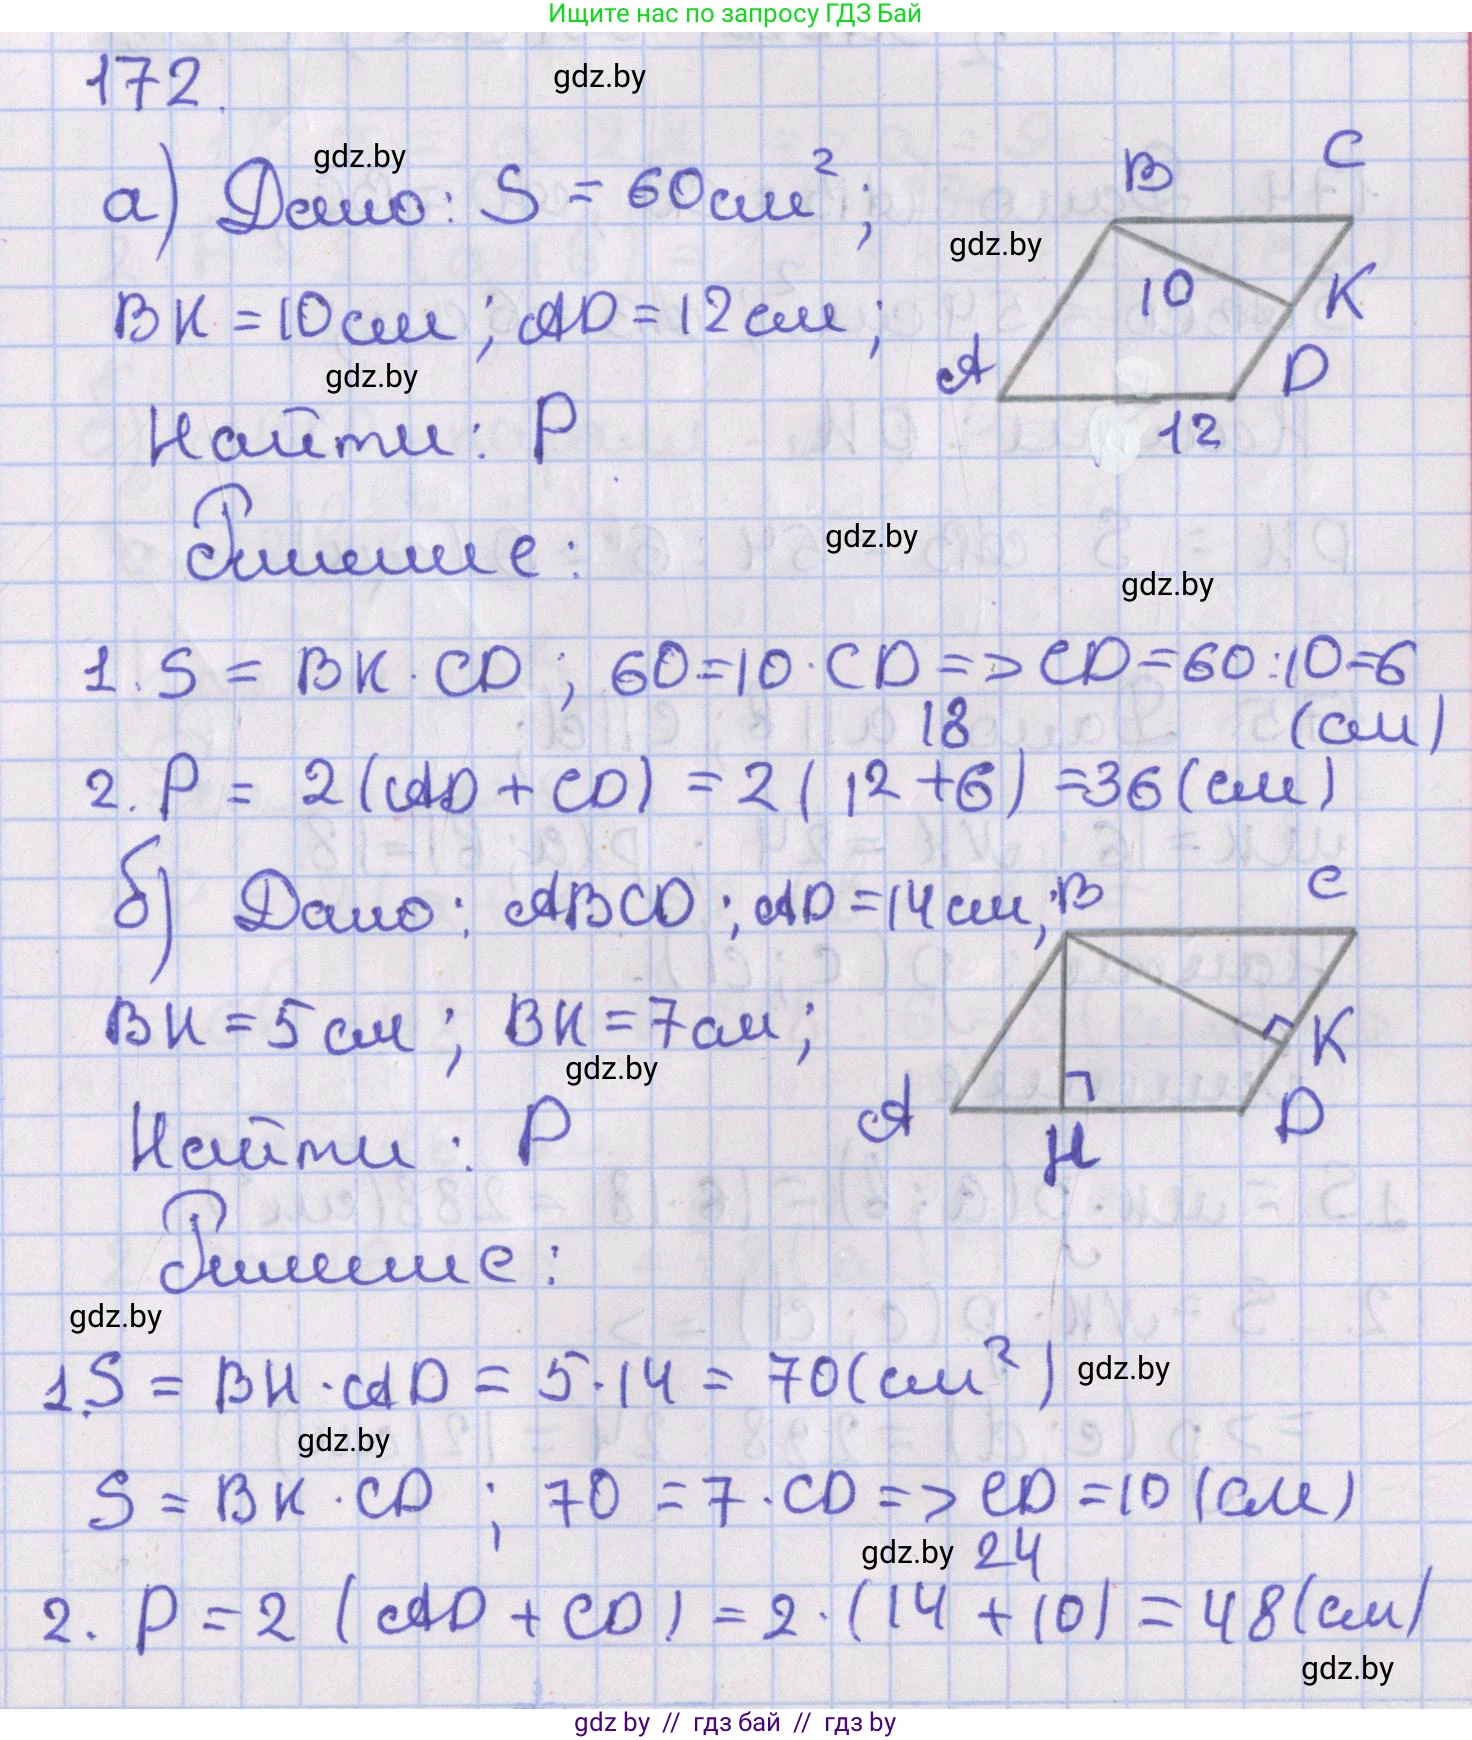 Ищите нас по запросу ГДЗ Бай
172.
gdz.by
gdz.by
а) Дано: S = 60 см²;
B C
gdz.by
10 K
BK = 10 см; AD = 12 см;
gdz.by
A D
12
Найти: P
Решение:
gdz.by
gdz.by
1. S = BK · CD; 60 = 10 · CD => CD = 60 : 10 = 6
(см)
18
2. P = 2 (AD + CD) = 2 ( 12 + 6 ) = 36 (см)
б) Дано: ABCD; AD = 14 см;
B C
BH = 5 см; BK = 7 см;
K
gdz.by
A H D
Найти: P
Решение:
gdz.by
1. S = BH · AD = 5 · 14 = 70 (см²)
gdz.by
gdz.by
S = BK · CD ; 70 = 7 · CD => CD = 10 (см)
gdz.by
24
2. P = 2 (AD + CD) = 2 · (14 + 10) = 48 (см)
gdz.by
gdz by // гдз бай // гдз by